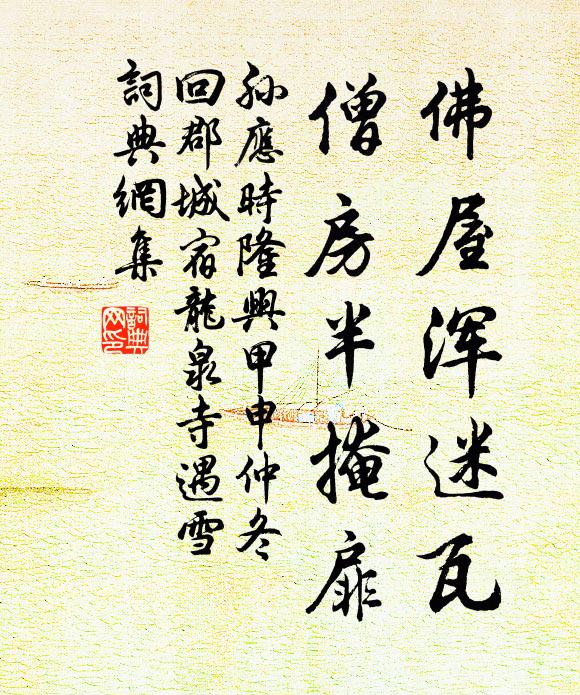 佛屋浑迷瓦
僧房半掩扉
孙應時隆興甲申仲冬
回郡城宿龍泉寺遇雪
詞典網集
詞典网印